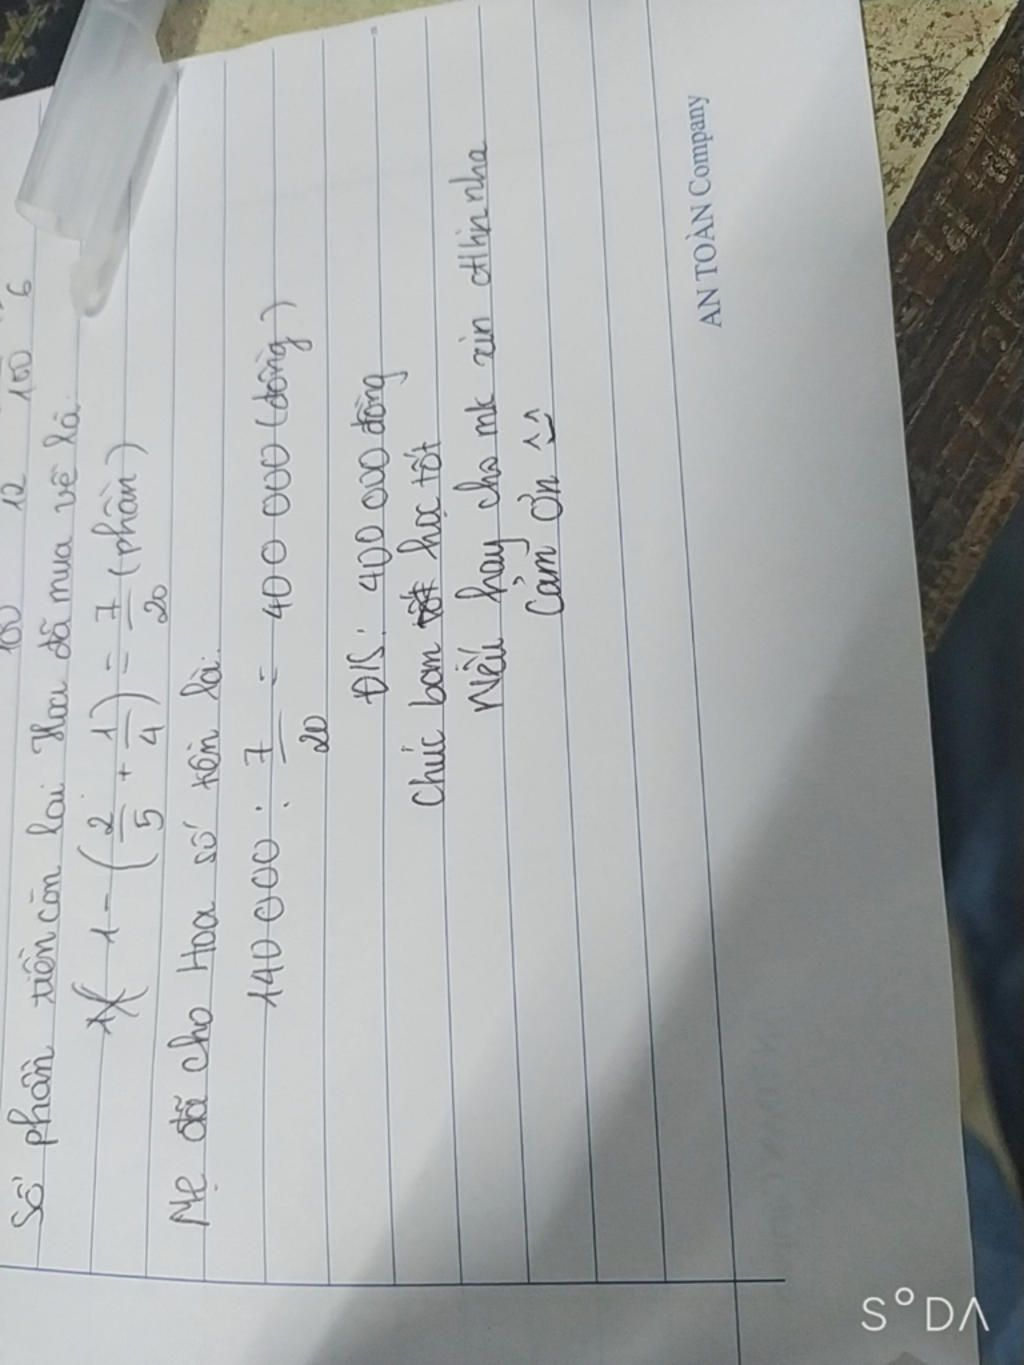 100 12 100 6
Số phần tiền còn lại Hoa đã mua vở là:
1 - (2/5 + 1/4) = 7/20 (phần)
Mẹ đã cho Hoa số tiền là:
140 000 : 7/20 = 400 000 (đồng)
Đ/S: 400 000 đồng
Chúc bạn học tốt
Nếu hay cho mk xin ctlhn nha
Cảm ơn ^^
AN TOÀN Company
S°DA